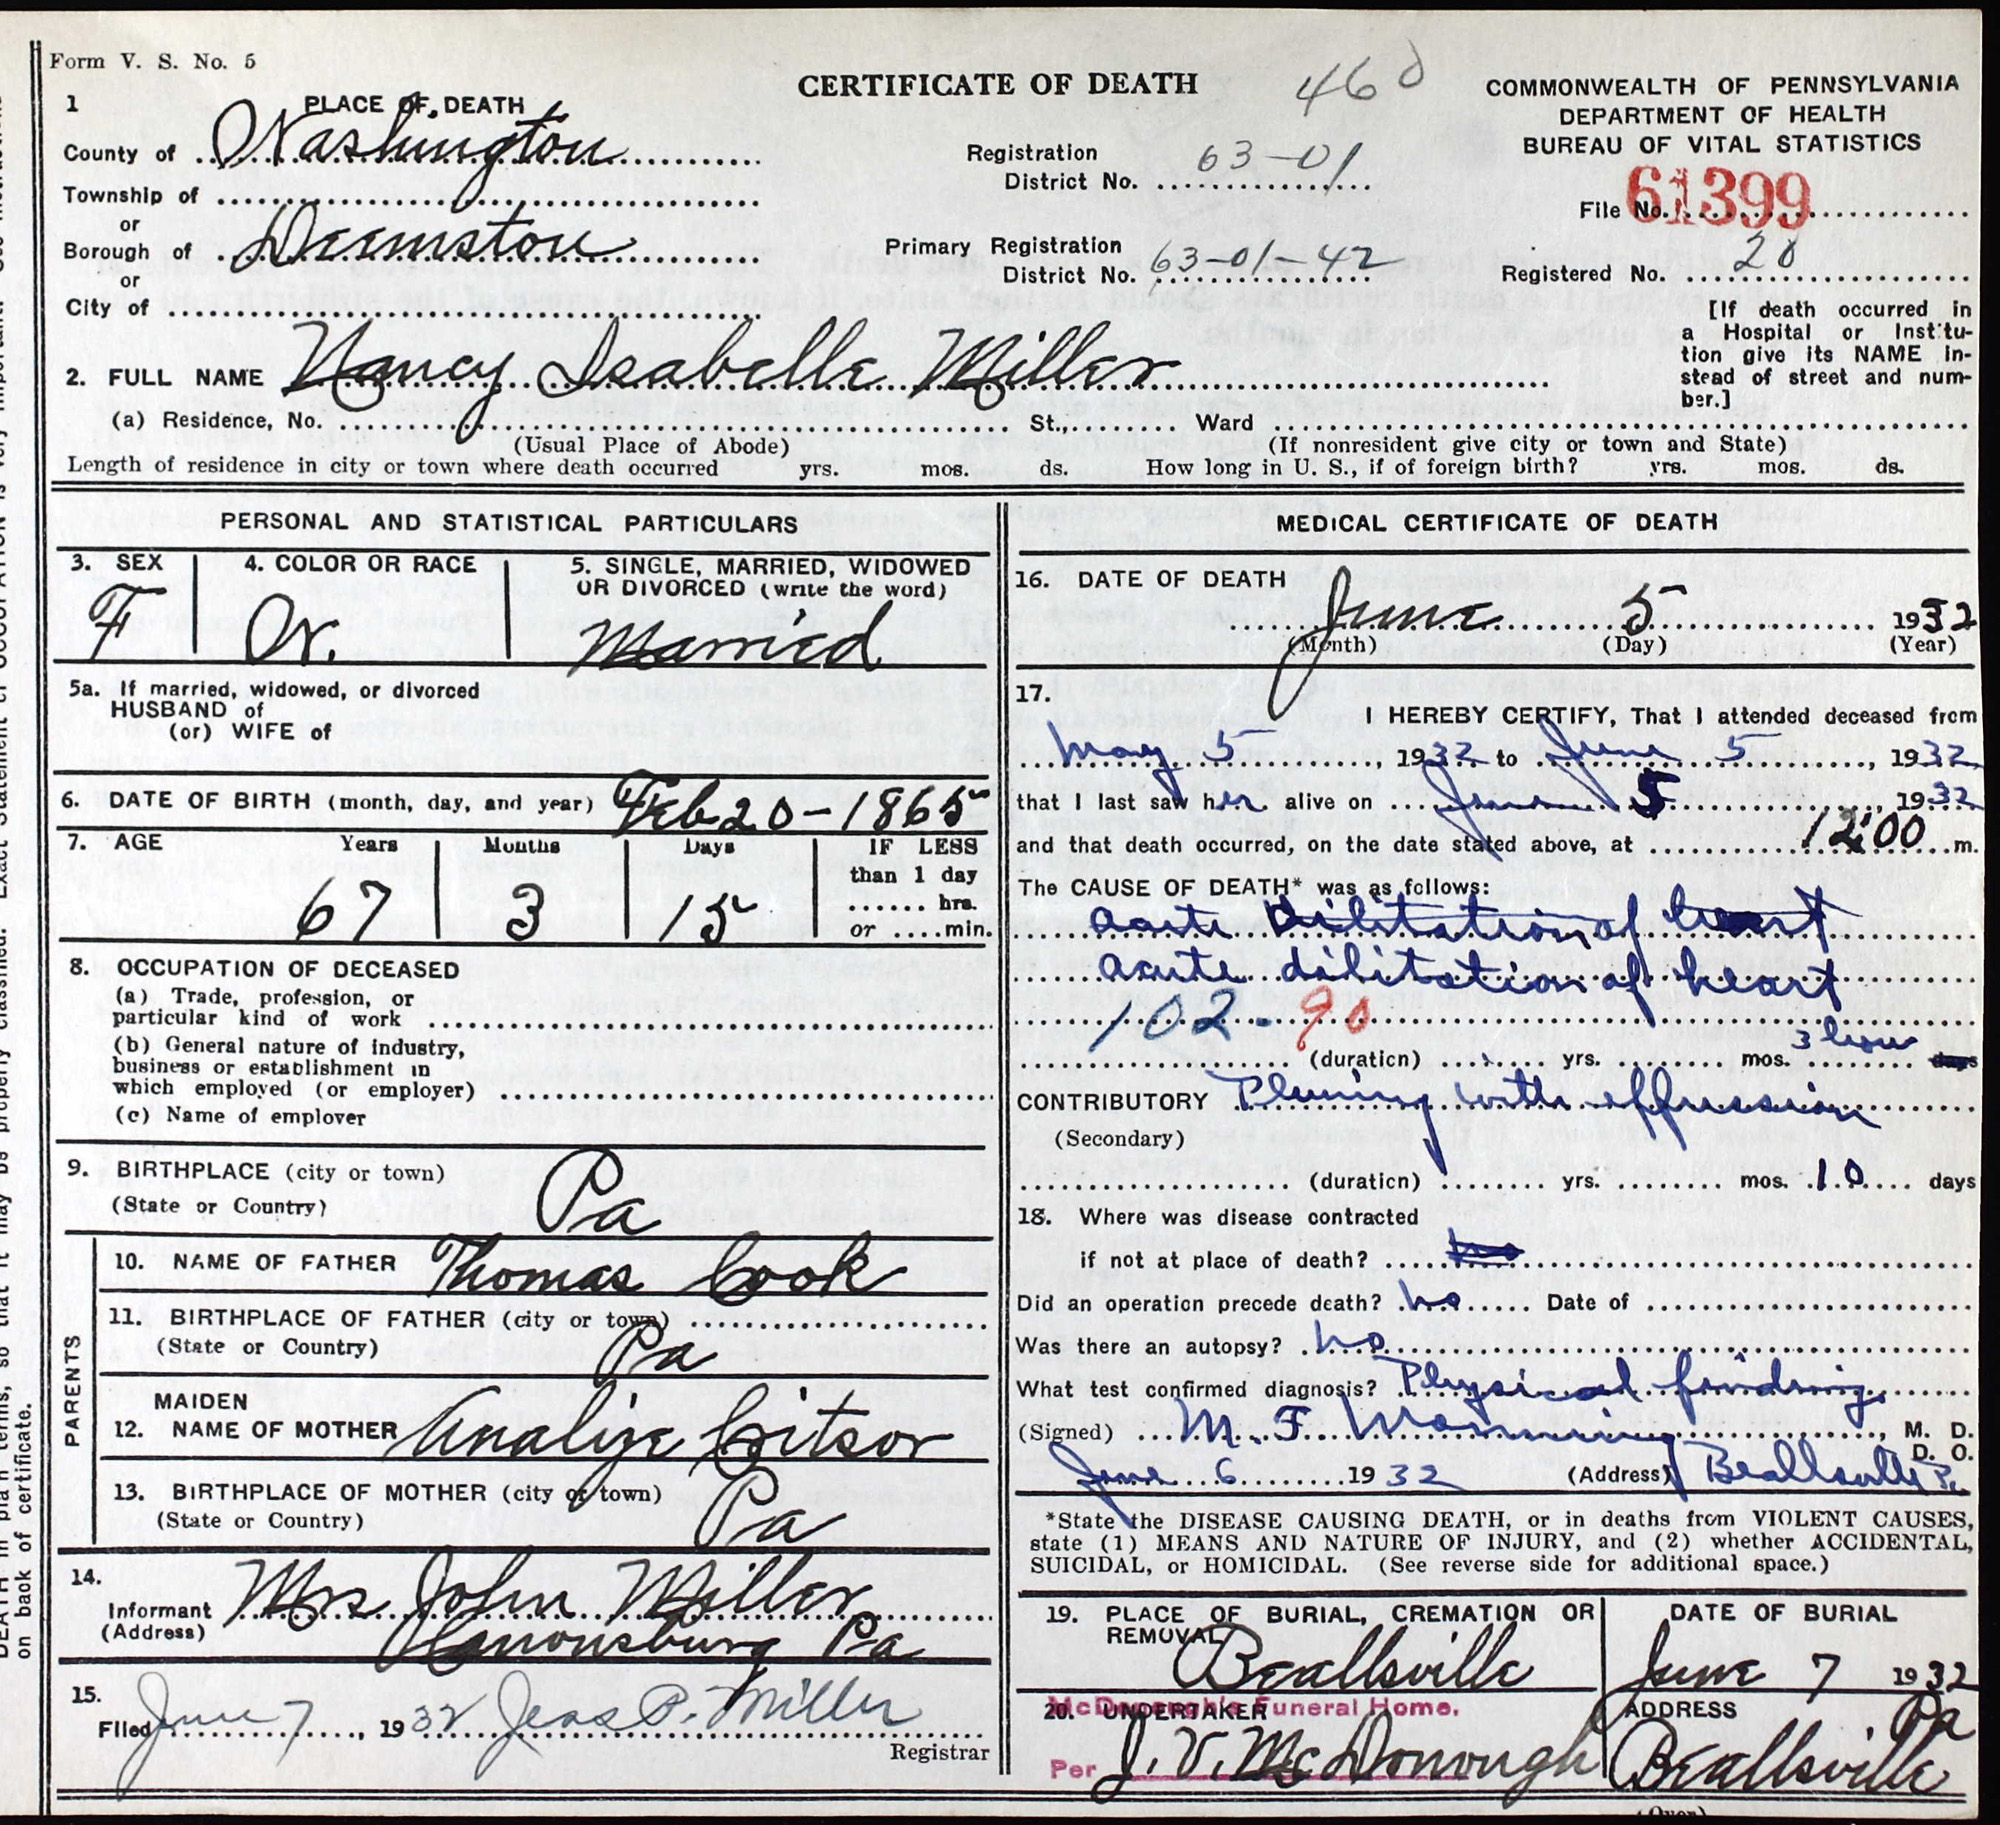 Form V. S. No. 5
CERTIFICATE OF DEATH
46
COMMONWEALTH OF PENNSYLVANIA
DEPARTMENT OF HEALTH
BUREAU OF VITAL STATISTICS
1 PLACE OF DEATH
County of Washington
Township of
or
Borough of Deemston
or
City of
Registration
District No. 63-01
Primary Registration
District No. 63-01-42
File No. 61399
Registered No. 20
[If death occurred in
a Hospital or Institu-
tion give its NAME in-
stead of street and num-
ber.]
2. FULL NAME Nancy Isabelle Miller
(a) Residence, No. St., Ward
(Usual Place of Abode) (If nonresident give city or town and State)
Length of residence in city or town where death occurred yrs. mos. ds. How long in U. S., if of foreign birth? yrs. mos. ds.
PERSONAL AND STATISTICAL PARTICULARS
3. SEX 4. COLOR OR RACE 5. SINGLE, MARRIED, WIDOWED
OR DIVORCED (write the word)
F W. Married
5a. If married, widowed, or divorced
HUSBAND of
(or) WIFE of
6. DATE OF BIRTH (month, day, and year) Feb 20-1865
7. AGE Years Months Days IF LESS
than 1 day
hrs.
or min.
67 3 15
8. OCCUPATION OF DECEASED
(a) Trade, profession, or
particular kind of work
(b) General nature of industry,
business or establishment in
which employed (or employer)
(c) Name of employer
9. BIRTHPLACE (city or town)
(State or Country) Pa
PARENTS
10. NAME OF FATHER Thomas Cook
11. BIRTHPLACE OF FATHER (city or town)
(State or Country) Pa
MAIDEN
12. NAME OF MOTHER Analize Gitsor
13. BIRTHPLACE OF MOTHER (city or town)
(State or Country) Pa
14.
Informant Mrs John Miller
(Address) Canonsburg Pa
15.
Filed June 7, 1932 Jess P. Miller
Registrar
MEDICAL CERTIFICATE OF DEATH
16. DATE OF DEATH
June 5 1932
(Month) (Day) (Year)
17.
I HEREBY CERTIFY, That I attended deceased from
May 5, 1932 to June 5, 1932
that I last saw her alive on June 5, 1932
and that death occurred, on the date stated above, at 12:00 m.
The CAUSE OF DEATH* was as follows:
acute dilitation of heart
acute dilitation of heart
102-90
(duration) yrs. mos. 3 hour days
CONTRIBUTORY Pleurisy with effussion
(Secondary)
(duration) yrs. mos. 10 days
18. Where was disease contracted
if not at place of death? no
Did an operation precede death? no Date of
Was there an autopsy? no
What test confirmed diagnosis? Physical findings
(Signed) M. F. Manning, M. D.
D. O.
June 6 1932 (Address) Beallsville Pa
*State the DISEASE CAUSING DEATH, or in deaths from VIOLENT CAUSES,
state (1) MEANS AND NATURE OF INJURY, and (2) whether ACCIDENTAL,
SUICIDAL, or HOMICIDAL. (See reverse side for additional space.)
19. PLACE OF BURIAL, CREMATION OR
REMOVAL
Beallsville
DATE OF BURIAL
June 7 1932
McDonough's Funeral Home.
20. UNDERTAKER
Per J. V. McDonough
ADDRESS
Beallsville Pa
(Over)
on back of certificate.